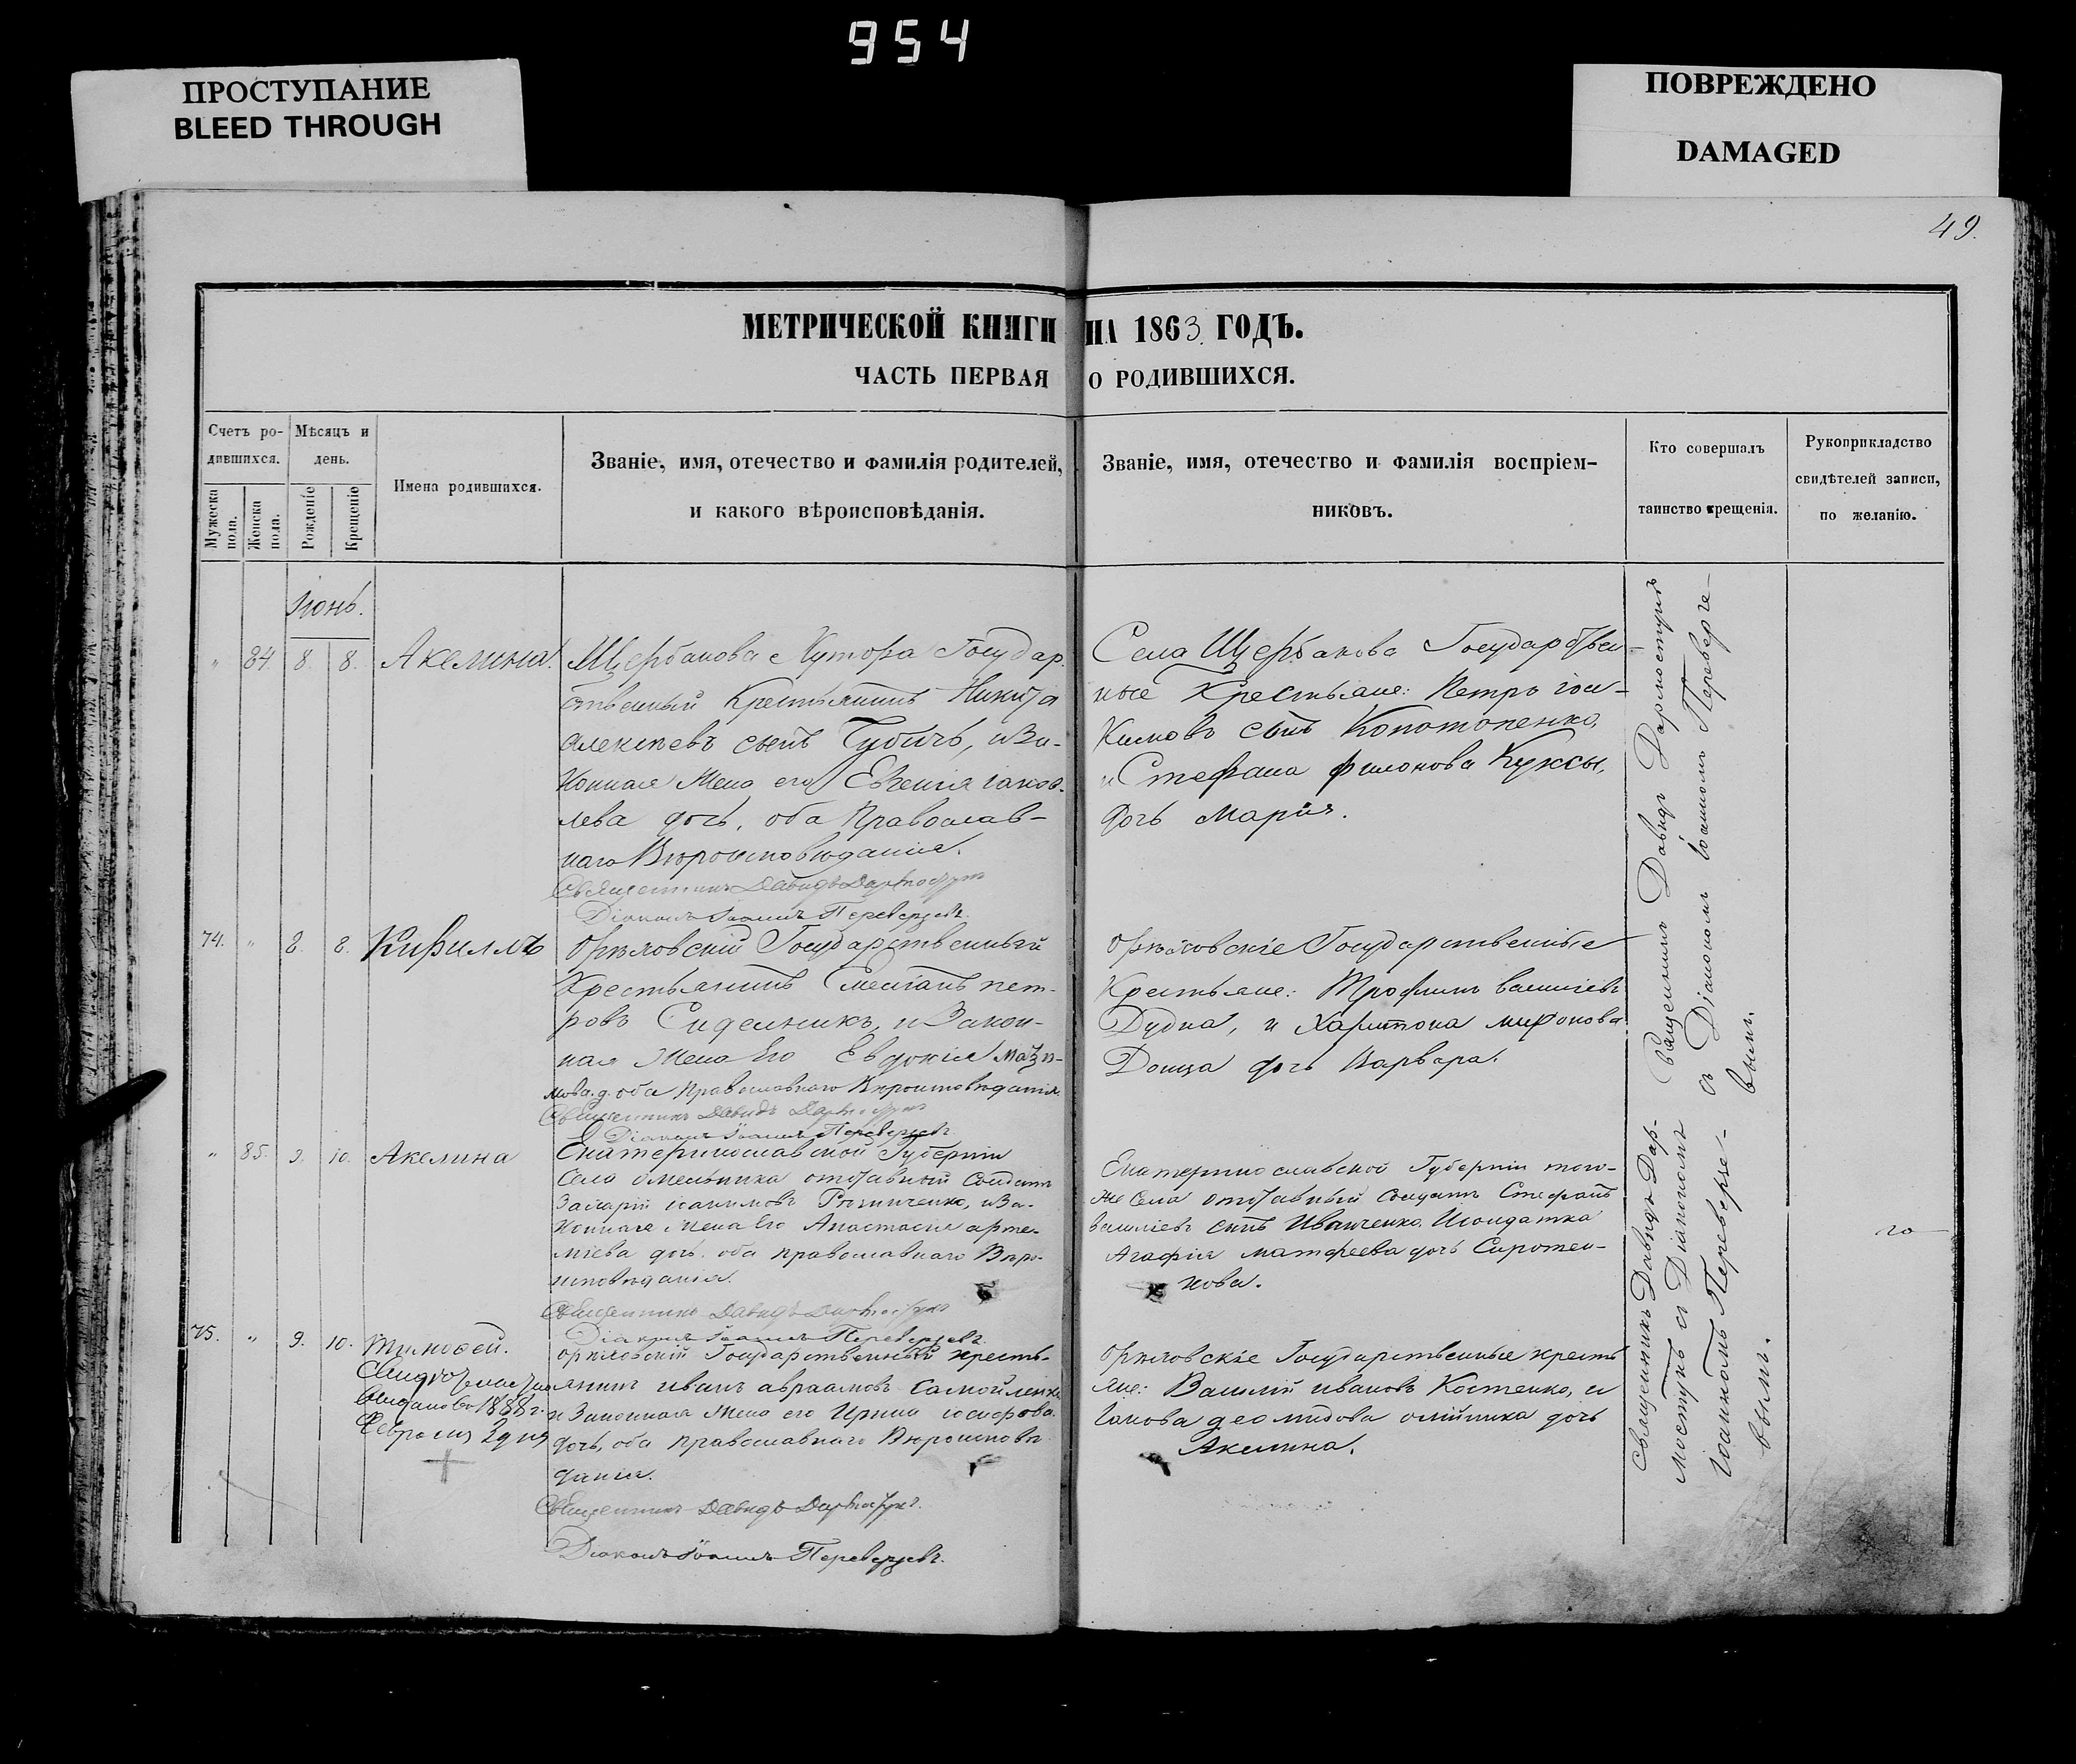 954
ПРОСТУПАНИЕ
BLEED THROUGH
ПОВРЕЖДЕНО
DAMAGED
49.
МЕТРИЧЕСКОЙ КНИГИ НА 1863 ГОДЪ.
ЧАСТЬ ПЕРВАЯ О РОДИВШИХСЯ.
Счетъ ро-
дившихся.
Мужеска
пола.
Женска
пола.
Мѣсяцъ и
день.
Рожденіе
Крещеніе
Имена родившихся.
Званіе, имя, отечество и фамилія родителей,
и какого вѣроисповѣданія.
Званіе, имя, отечество и фамилія воспріем-
никовъ.
Кто совершалъ
таинство крещенія.
Рукоприкладство
свидѣтелей записи,
по желанію.
Іюнь.
" 84. 8. 8. Акелина.
Щербакова Хутора Государ-
ственный Крестьянинъ Никита
Алексѣевъ сынъ Губичъ, и за-
конная жена его Евгенія іаков-
лева дочь, оба Православ-
наго Вѣроисповѣданія.
Священникъ Давидъ Дармостукъ
Діаконъ Іоаннъ Переверзевъ.
Села Щербакова Государствен-
ные Крестьяне: Петръ іоа-
кимовъ сынъ Конотопенко,
и Стефана филонова Куксы,
дочь Марія.
74. " 8. 8. Кириллъ
Орѣховскій Государственный
Крестьянинъ Стефанъ пет-
ровъ Сидельникъ, и Закон-
ная Жена Его Евдокія
мова д. оба Православнаго Вѣроисповѣданія.
Священникъ Давидъ Дармостукъ
Діаконъ Іоаннъ Переверзевъ.
Орѣховскіе Государственные
Крестьяне: Трофимъ васильевъ
Дудка, и Харитона миронова
Донца дочь Варвара.
Священникъ Давидъ Дармостукъ
съ Діакономъ Іоанномъ Переверзе-
вымъ.
" 85. 9. 10. Акелина
Екатеринославской Губерніи
Села Омельника отставной Солдатъ
Захарій іоакимовъ, и за-
конная жена Его Анастасія арте-
міева дочь. оба православнаго Вѣро-
исповѣданія.
Священникъ Давидъ Дармостукъ
Діаконъ Іоаннъ Переверзевъ.
Екатеринославской Губерніи того-
же Села отставный Солдатъ Стефанъ
васильевъ сынъ Иванченко. И солдатка
Агафія матфеева дочь Сиротен-
кова.
75. " 9. 10. Тимофей.
выдано 1888 г.
Февраля 29 дня
Орѣховскій Государственный кресть-
янинъ иванъ авраамовъ Самойленко
и Законная жена его Ирина іосифова
дочь, оба православнаго Вѣроисповѣ-
данія.
Священникъ Давидъ Дармостукъ.
Діаконъ Іоаннъ Переверзевъ.
Орѣховскіе Государственные кресть-
яне: Василій ивановъ Костенко, и
Іакова деомидова олійника дочь
Акелина.
Священникъ Давидъ Дар-
мостукъ съ Діакономъ
Іоанномъ Переверзе-
вымъ.